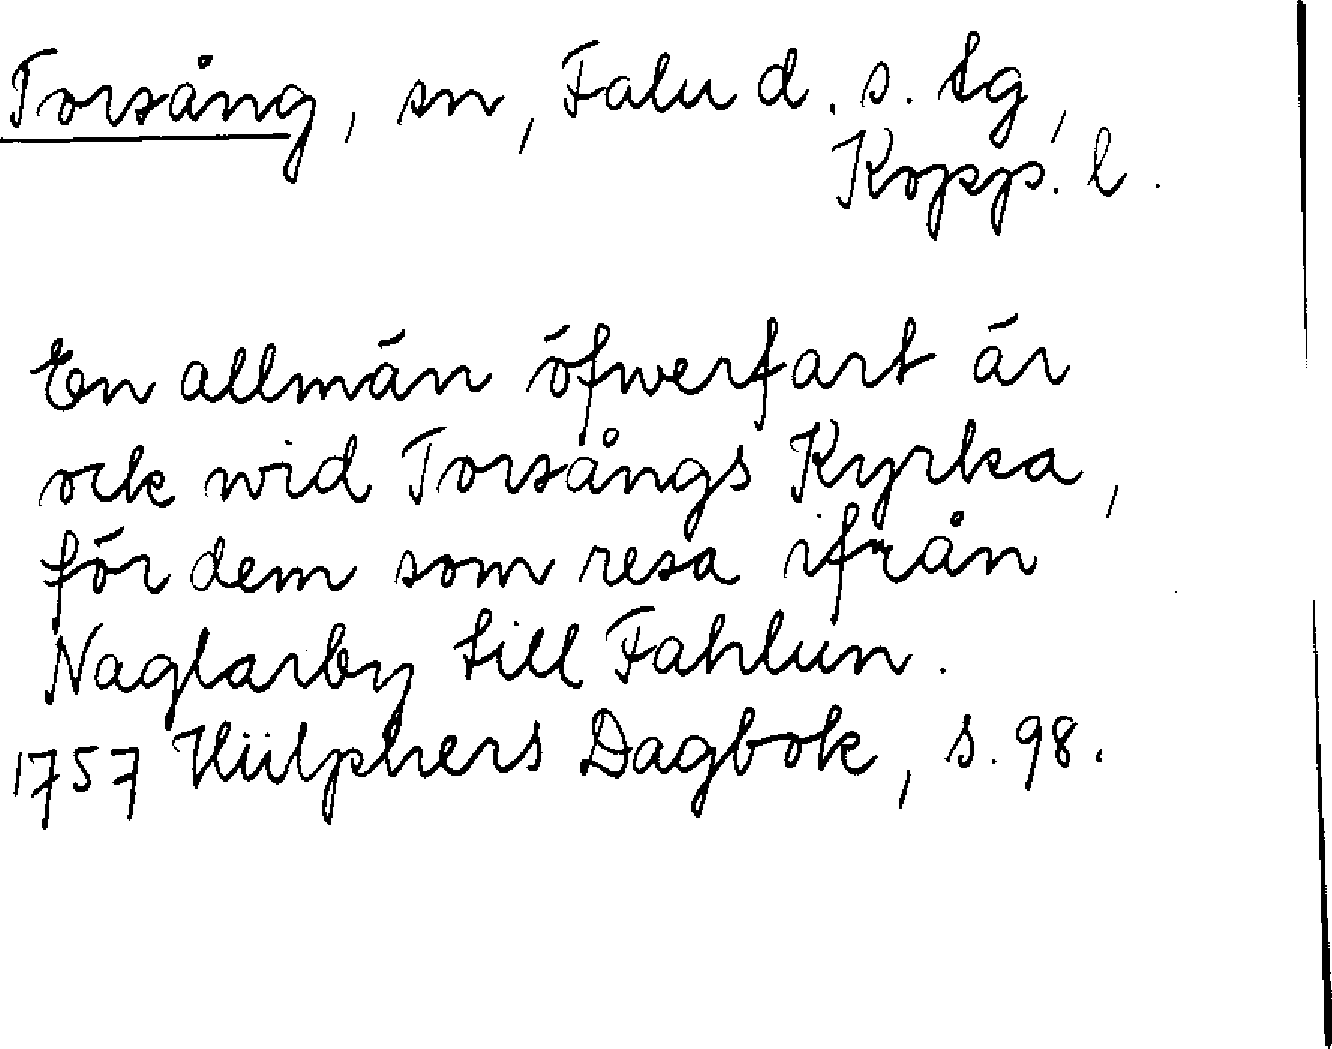 Torsång, sn, Falu d. s. tg,
Kopp. l.
En allmän öfwerfart är
ock wid Torsångs Kyrka,
för dem som resa ifrån
Naglarby till Fahlun.
1757 Hülphers Dagbok, s. 98.